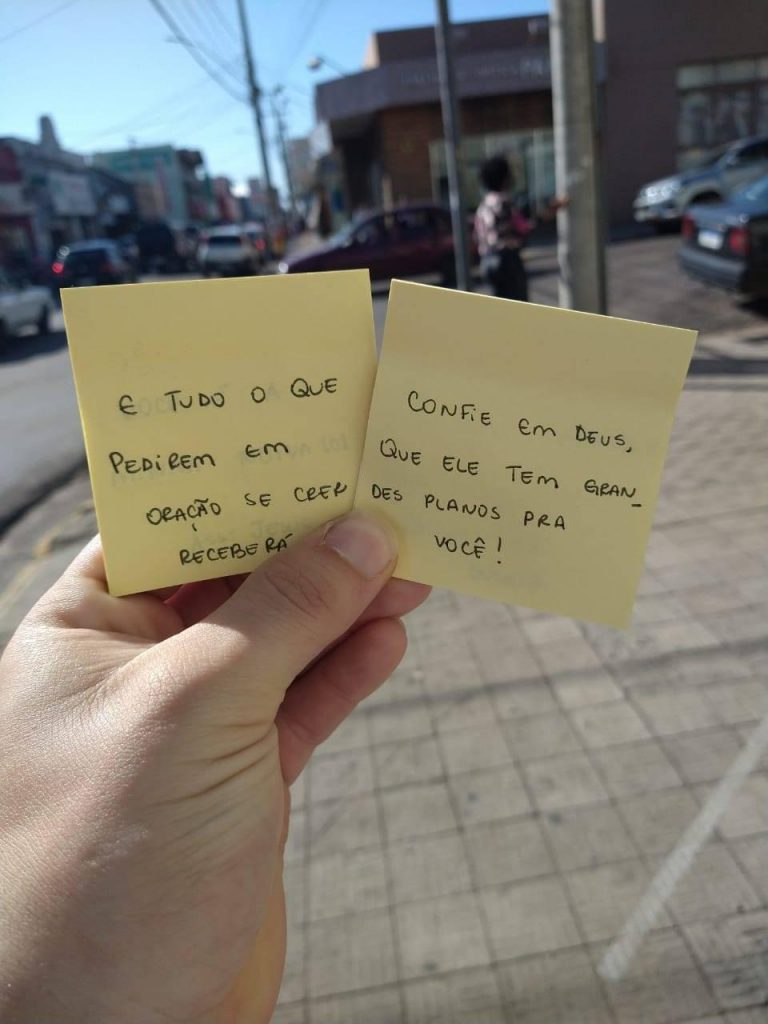 E TUDO O QUE
PEDIREM EM
ORAÇÃO SE CRER
RECEBERÁ
CONFIE EM DEUS,
QUE ELE TEM GRAN_
DES PLANOS PRA
VOCÊ!